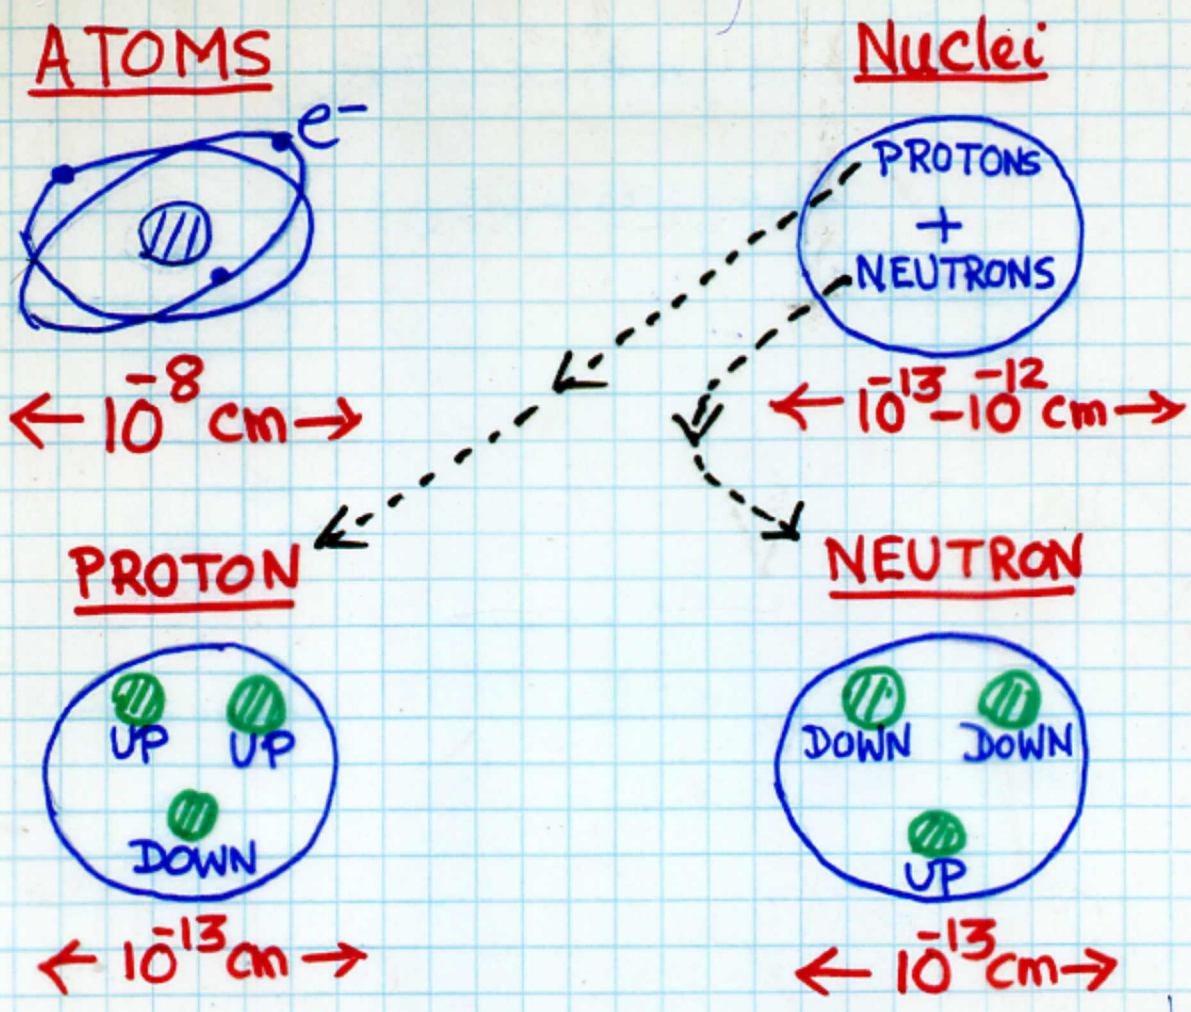 ATOMS
e⁻
10⁻⁸ cm
Nuclei
PROTONS
+
NEUTRONS
10⁻¹³-10⁻¹² cm
PROTON
UP UP
DOWN
10⁻¹³ cm
NEUTRON
DOWN DOWN
UP
10⁻¹³ cm